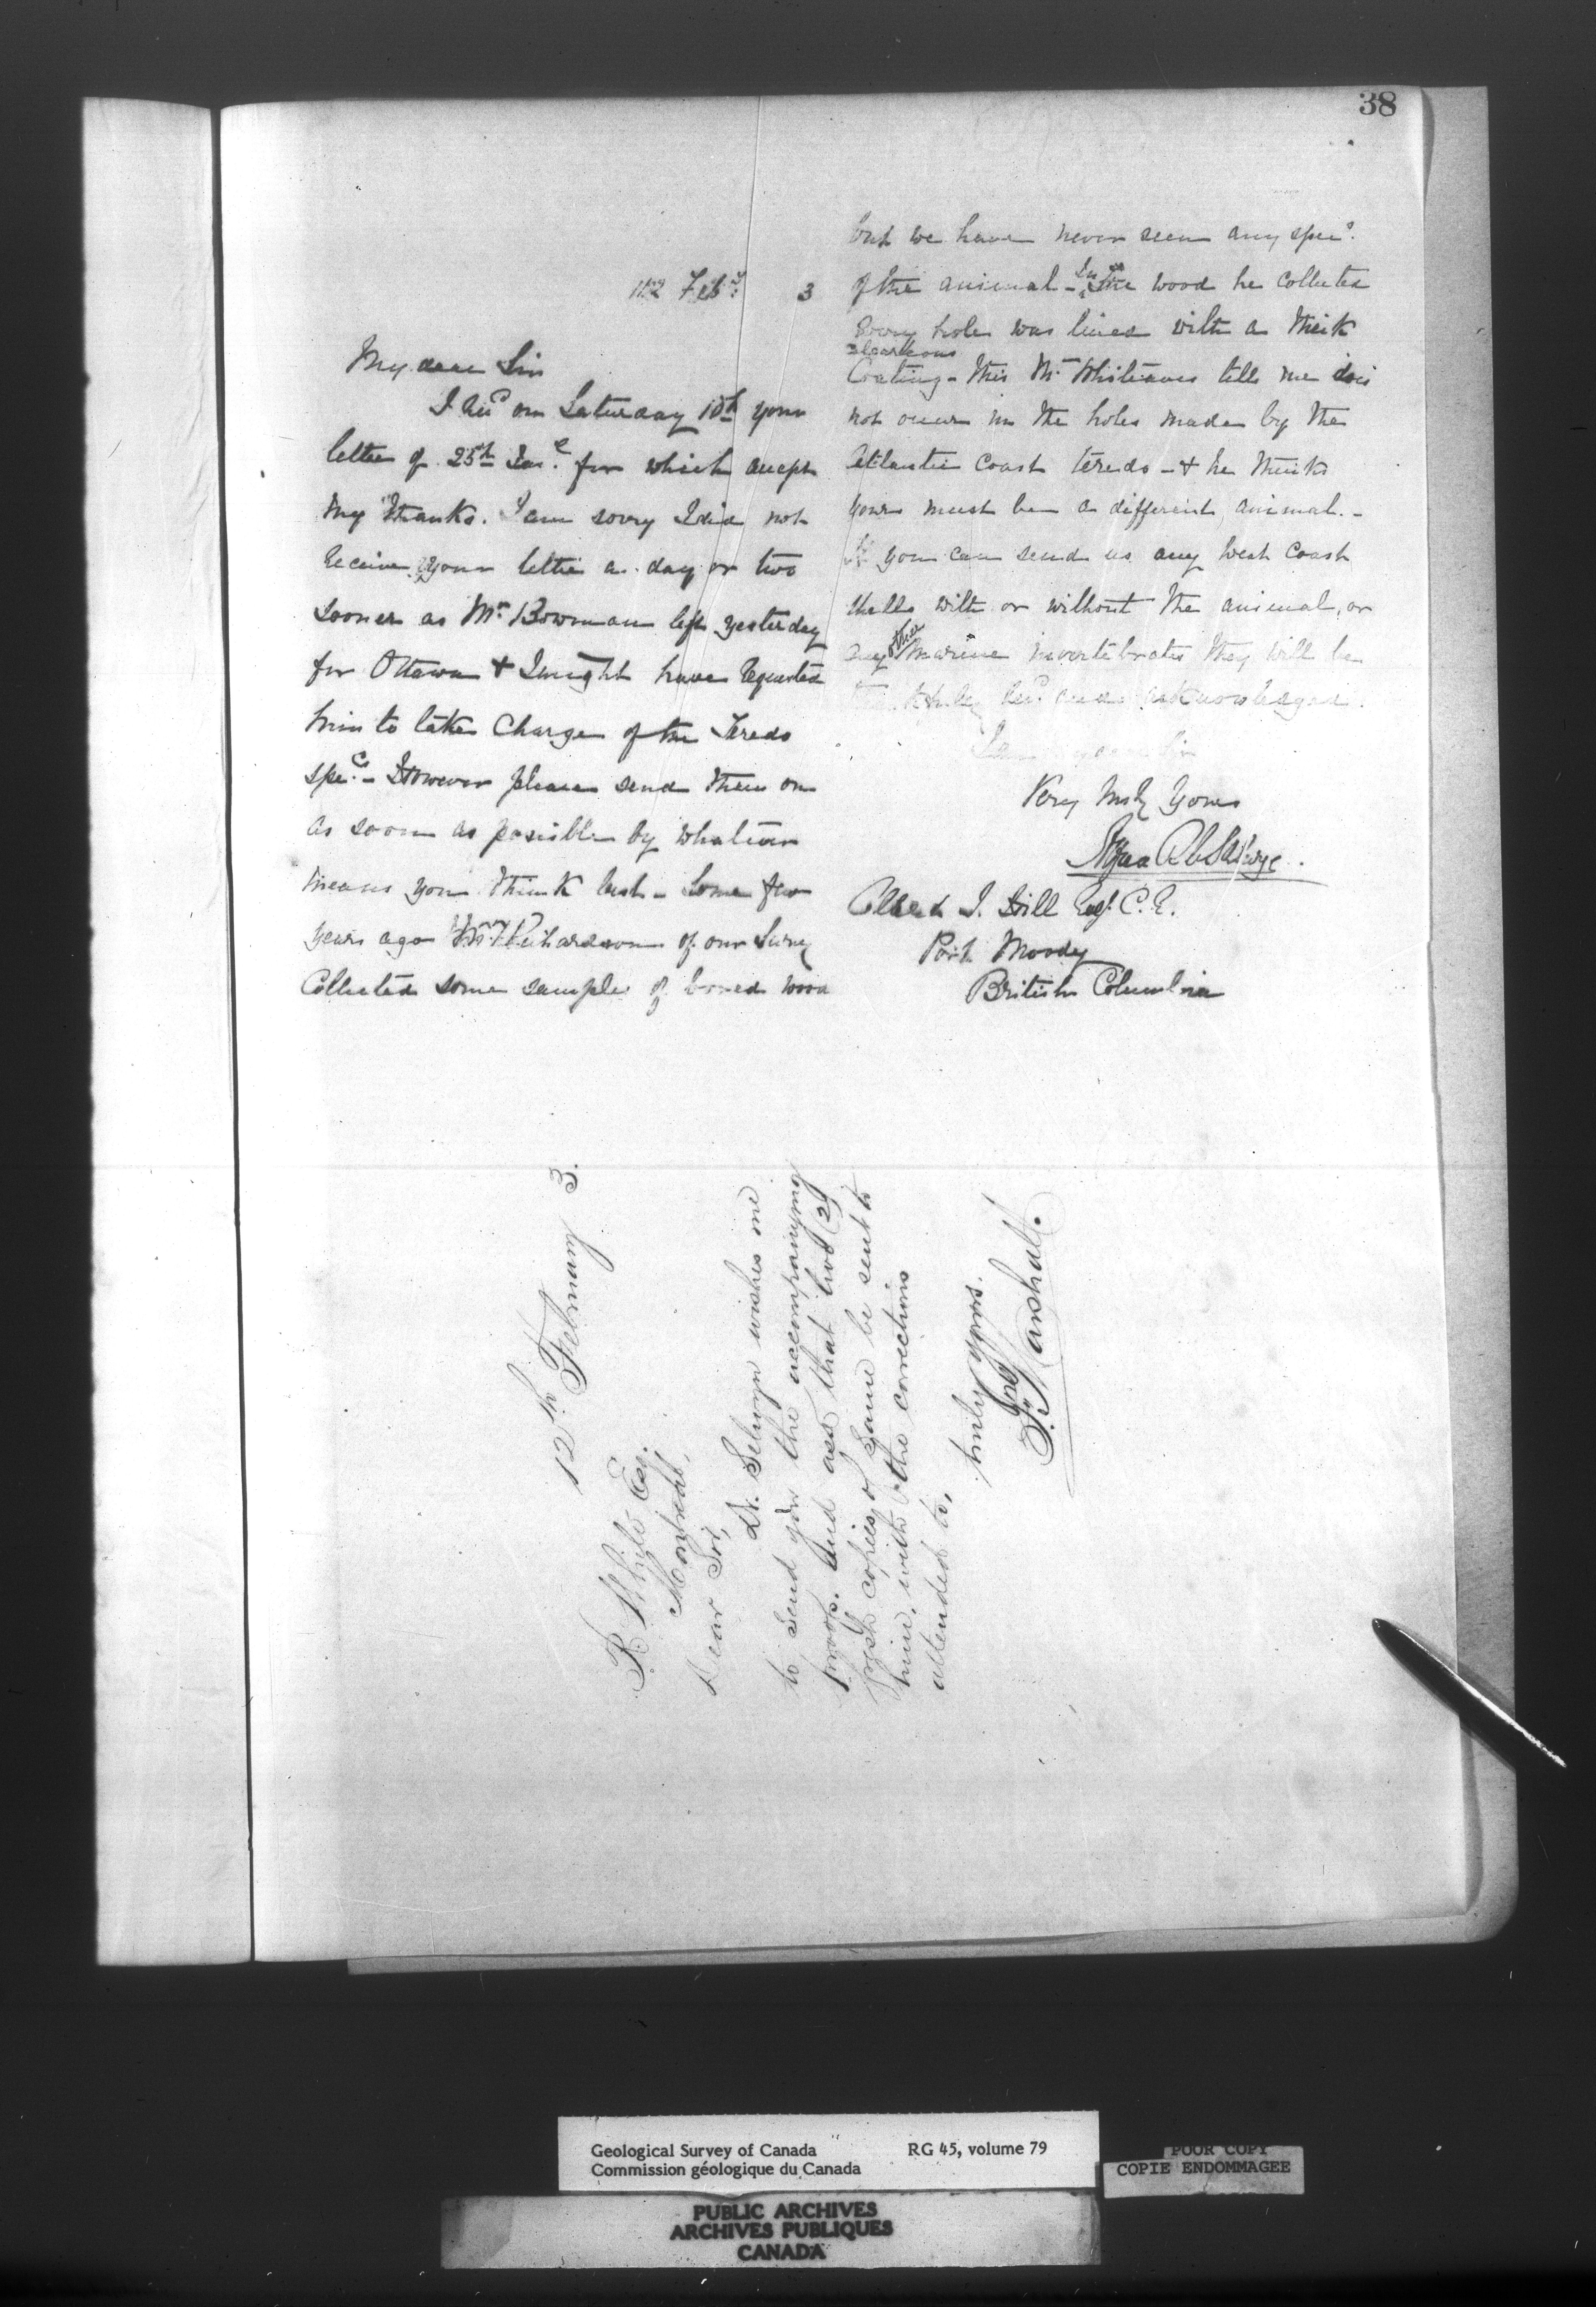 38
12 Feby 3
My dear Sir
I recd on Saturday 10th your
letter of 25th Jan. for which accept
my thanks. I am sorry I did not
receive your letter a day or two
sooner as Mr Bowman left yesterday
for Ottawa & I might have requested
him to take charge of the Teredo
specs. However please send them on
as soon as possible by whatever
means you think best - Some few
years ago Mr Richardson of our Survey
Collected some samples of bored wood
but we have never seen any specs.
of the animal - In the wood he collected
Every hole was lined with a thick
calcareous
Coating - this Mr Whiteaves tells me does
not occur in the holes made by the
Atlantic Coast teredo - & he thinks
yours must be a different animal. -
If you can send us any West Coast
shells with or without the animal, or
any other marine invertebrates they will be
thankfully recd. and acknowledged.
I am my dear Sir
Very truly yours
Alfred R C Selwyn.
Albert J. Hill Esq. C.E.
Port Moody
British Columbia
12th February 3.
R. White Esq.
Montreal,
Dear Sir,
Dr. Selwyn wishes me
to send you the accompanying
proof. And asks that two (2)
fresh copies of same be sent to
him, with the corrections
attended to,
truly yours.
J. Marshall.
Geological Survey of Canada RG 45, volume 79
Commission géologique du Canada
POOR COPY
COPIE ENDOMMAGEE
PUBLIC ARCHIVES
ARCHIVES PUBLIQUES
CANADA